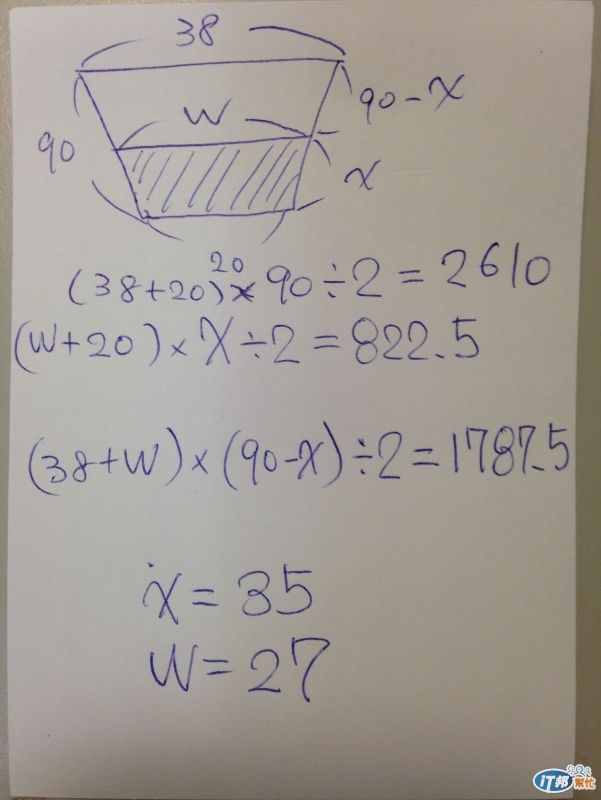 38
W
90-X
90
X
20
(38+20)×90÷2=2610
(W+20)×X÷2=822.5
(38+W)×(90-X)÷2=1787.5
X=35
W=27
iT邦幫忙